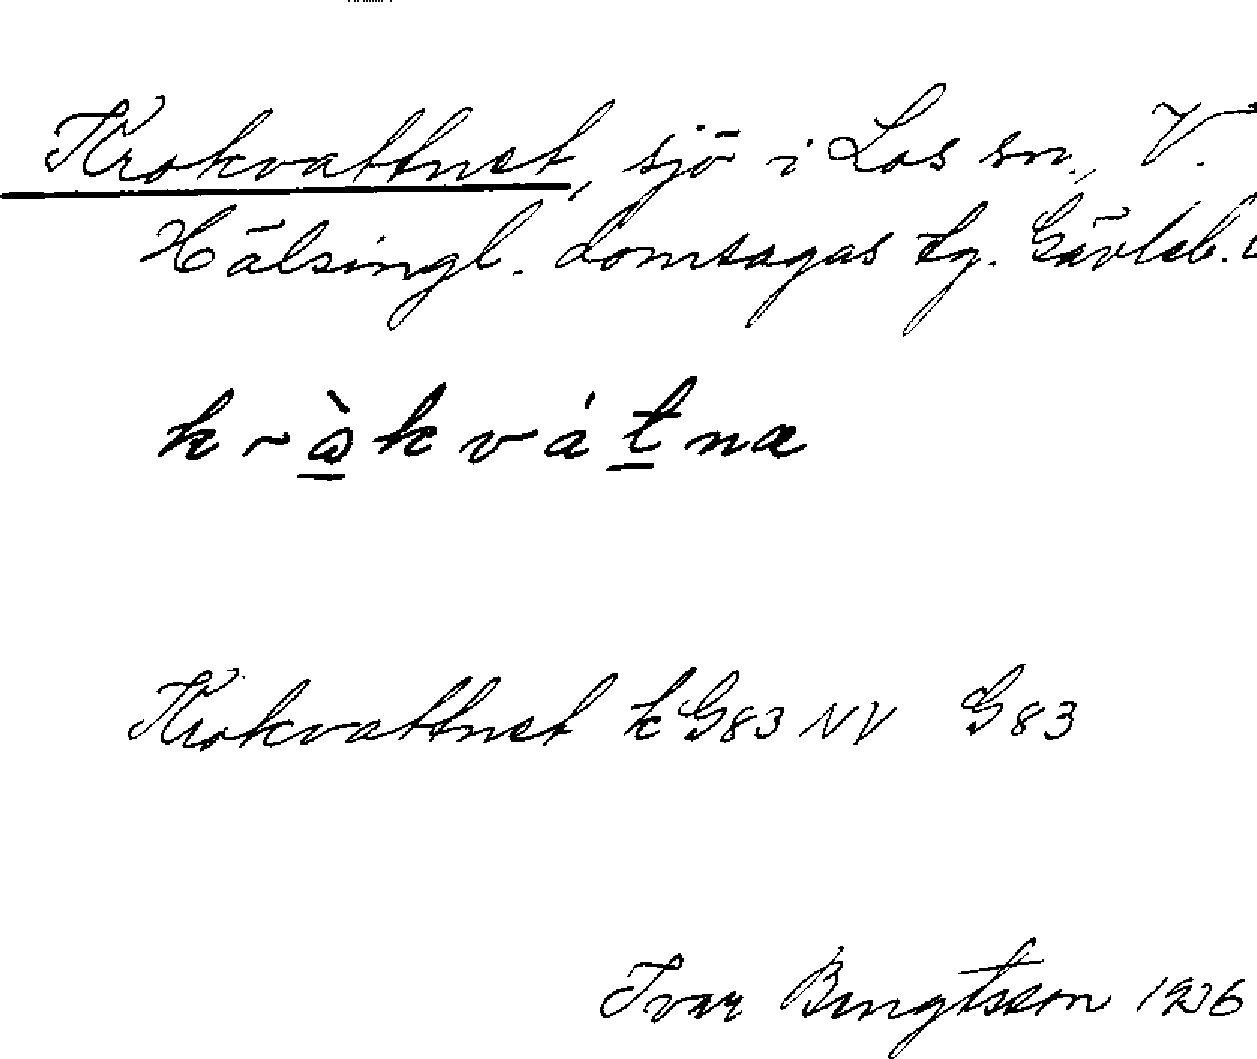 Krokvattnet, sjö i Los sn., V.
Hälsingl. domsagas tg. Gävleb. l
Krokvattnet k G83 NV G 83
Ivar Bengtsson 1926